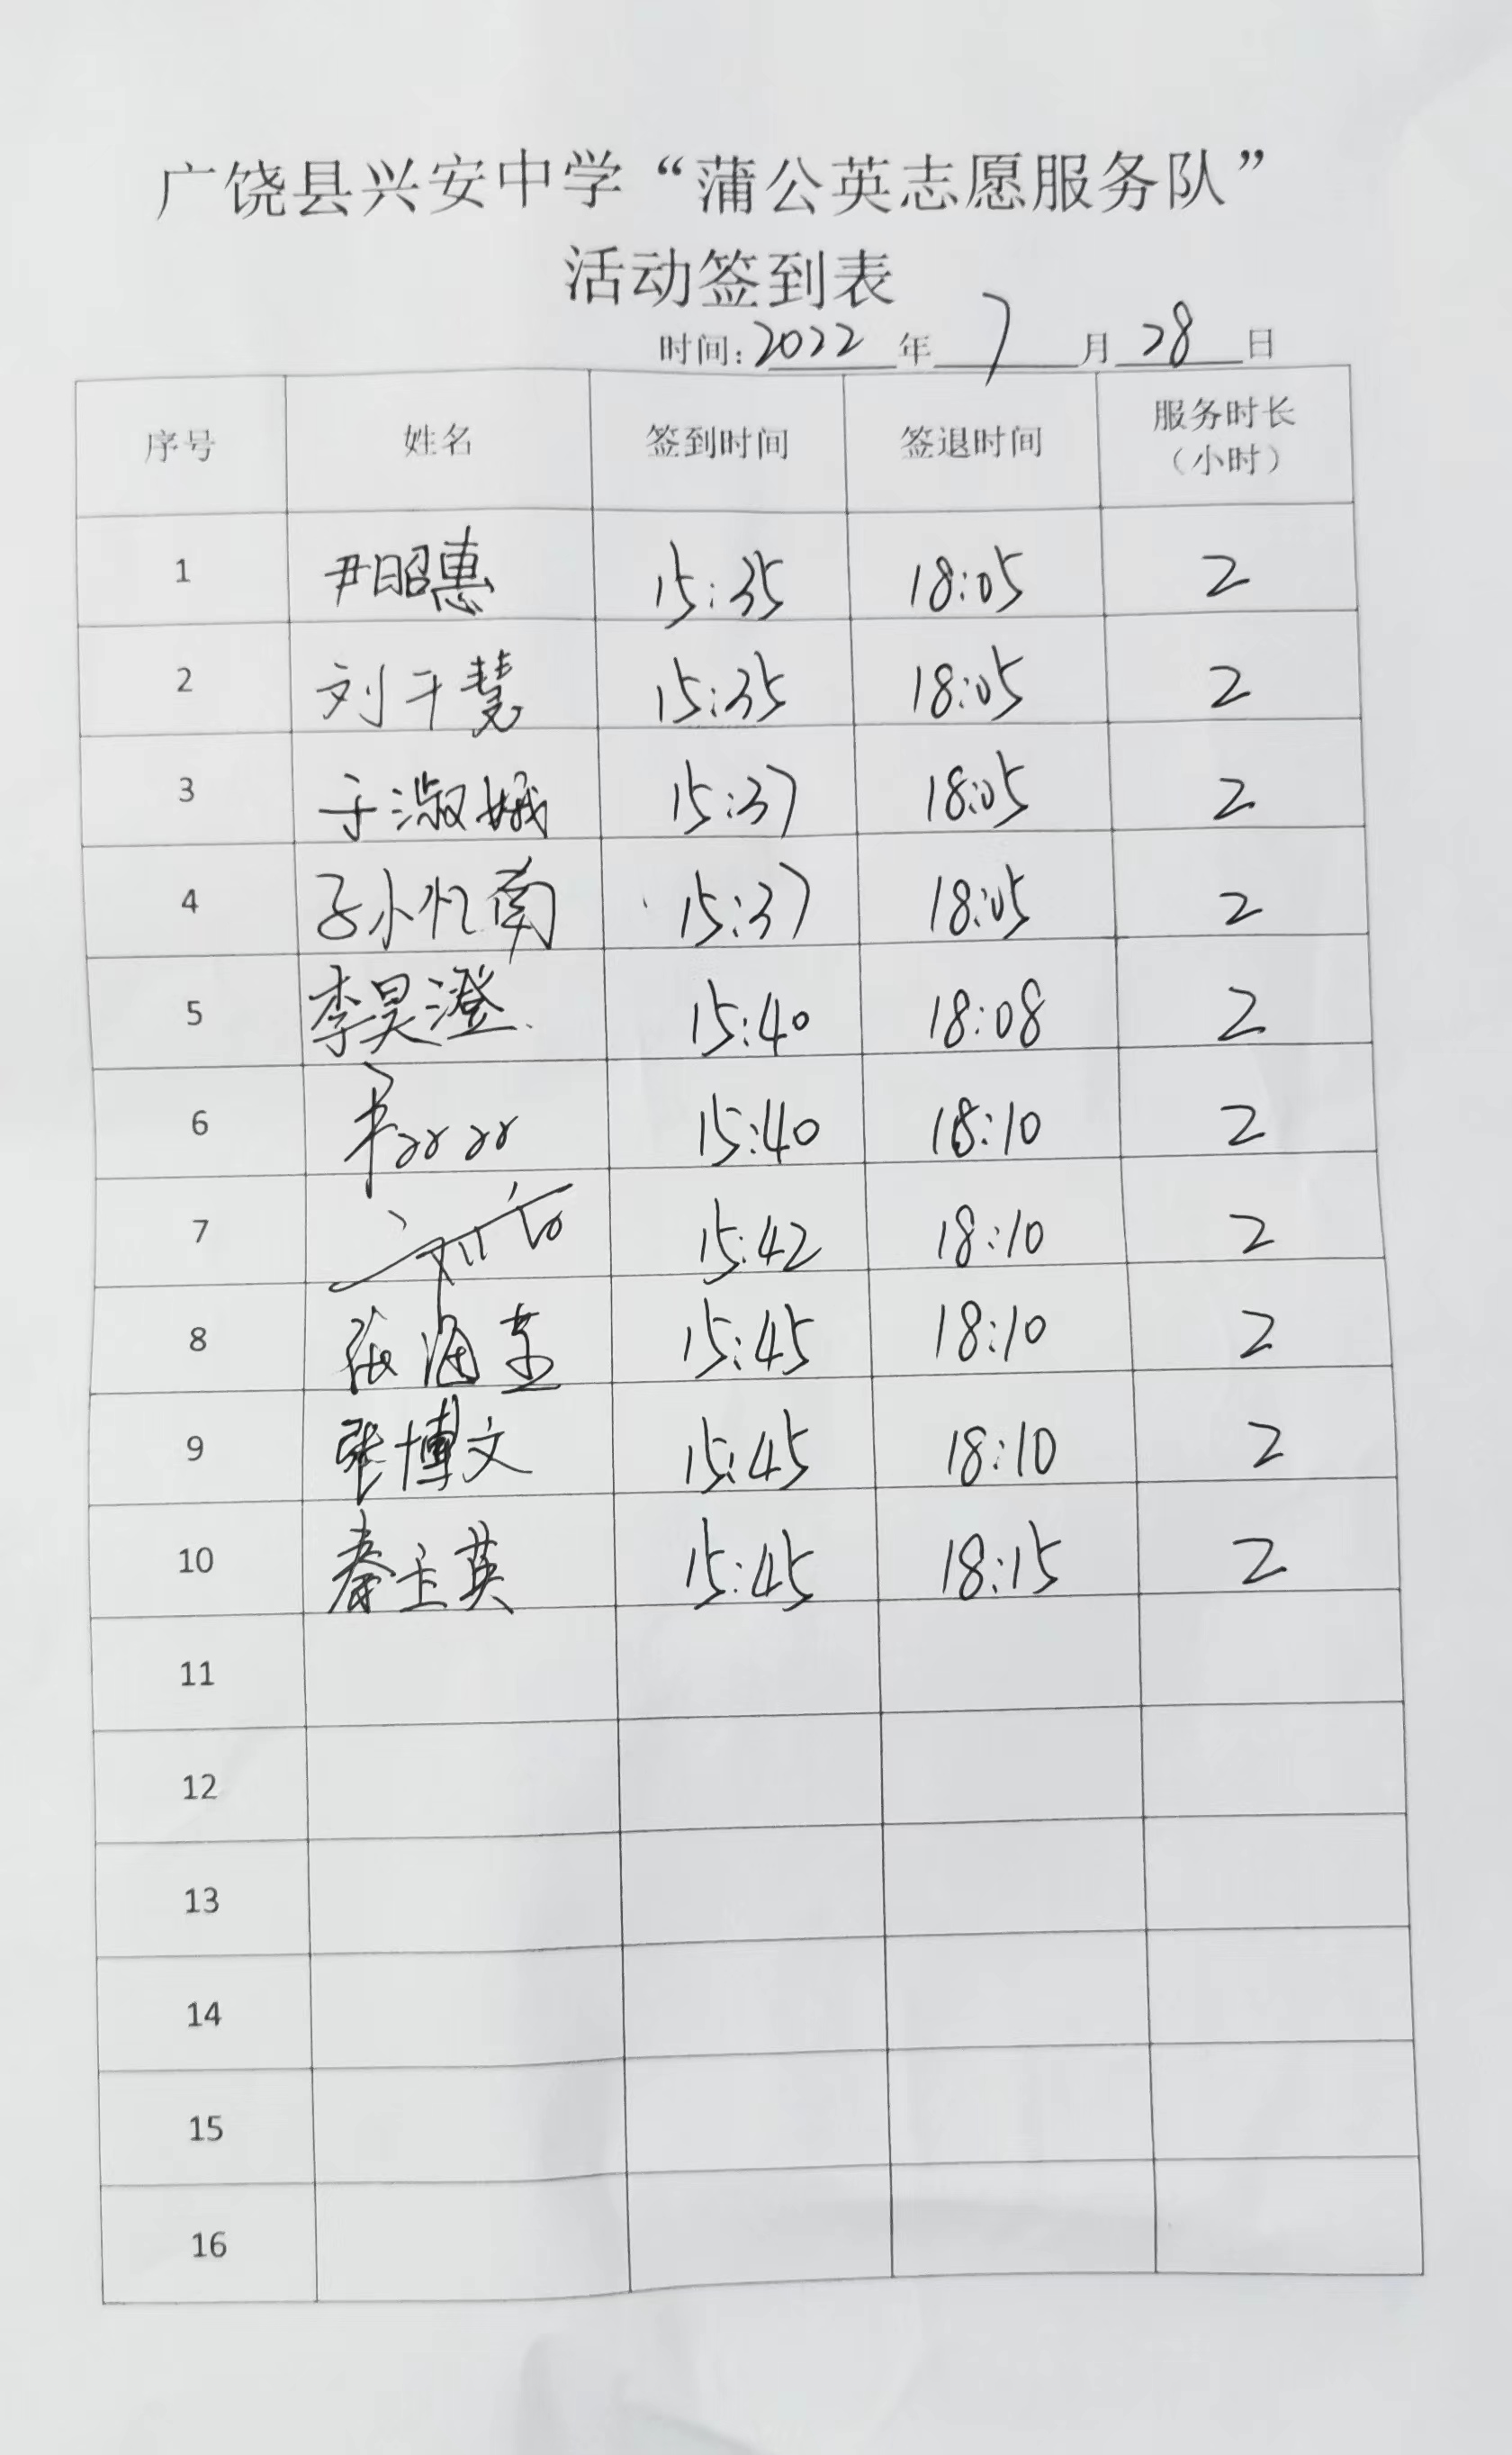 广饶县兴安中学“蒲公英志愿服务队”
活动签到表
时间:2022年7月28日
序号 姓名 签到时间 签退时间 服务时长（小时）
1 尹昭惠 15:35 18:05 2
2 刘千慧 15:35 18:05 2
3 于淑娥 15:37 18:05 2
4 孙忆南 15:37 18:05 2
5 李昊澄 15:40 18:08 2
6 15:40 18:10 2
7 15:42 18:10 2
8 张海 15:45 18:10 2
9 张博文 15:45 18:10 2
10 秦玉英 15:45 18:15 2
11
12
13
14
15
16